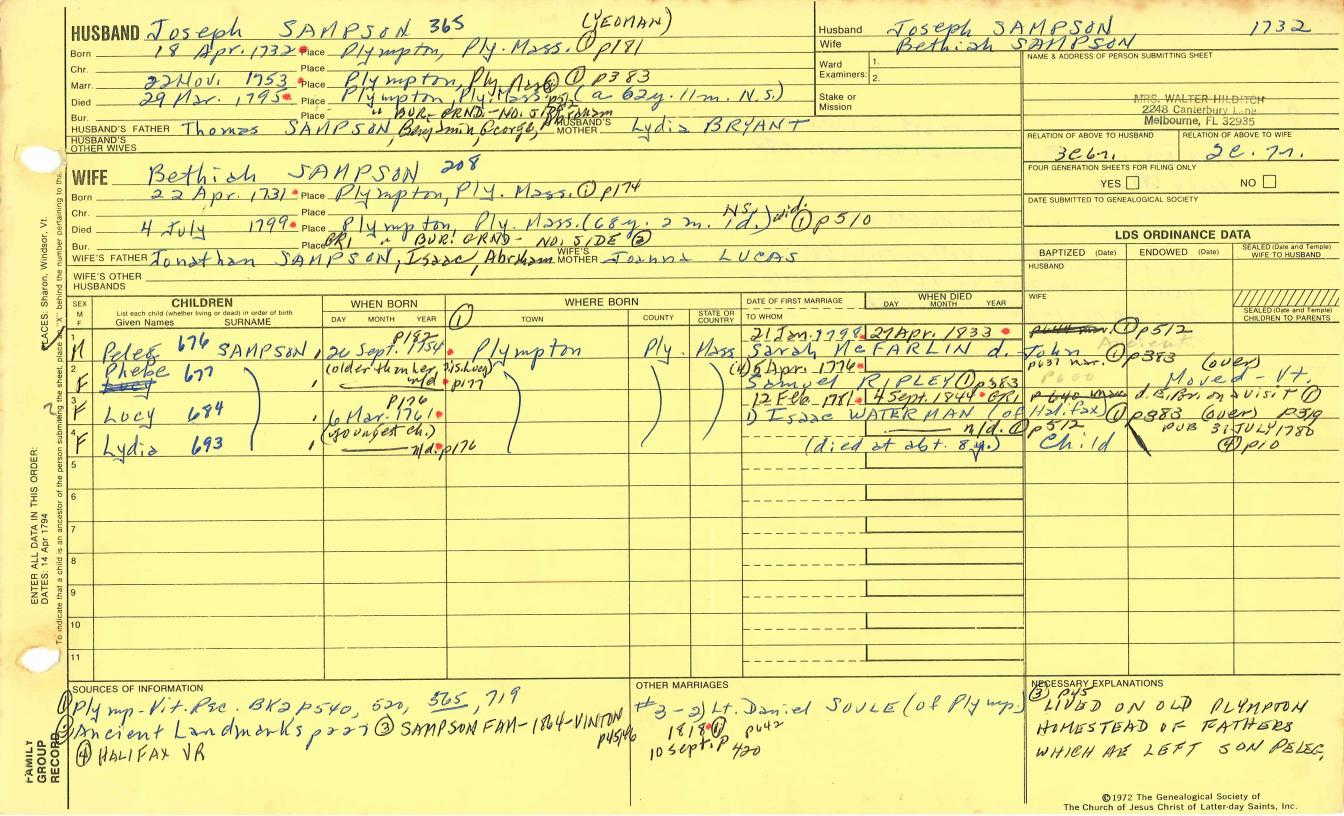 HUSBAND Joseph SAMPSON 365 (YEOMAN)
Born 18 Apr. 1732 Place Plympton, Ply. Mass. ① p181
Chr. Place
Marr. 22 Nov. 1753 Place Plympton, Ply Mass ① p383
Died 29 Mar. 1795 Place Plympton, Ply. Mass. (a 62y. 11m. N.S.)
Bur. Place " BUR. GRND.-NO. SIDE
HUSBAND'S FATHER Thomas SAMPSON, Benjamin, George, Abraham HUSBAND'S MOTHER Lydia BRYANT
HUSBAND'S OTHER WIVES
WIFE Bethiah SAMPSON 208
Born 22 Apr. 1731 Place Plympton, Ply. Mass. ① p174
Chr. Place
Died 4 July 1799 Place Plympton, Ply. Mass. (68y. 2m. 1d.) N.S. wid. ① p510
Bur. Place GR1 " BUR. GRND- NO. SIDE ②
WIFE'S FATHER Jonathan SAMPSON, Isaac, Abrham WIFE'S MOTHER Joanna LUCAS
WIFE'S OTHER HUSBANDS
Husband Joseph SAMPSON 1732
Wife Bethiah SAMPSON
Ward Examiners: 1. 2.
Stake or Mission
NAME & ADDRESS OF PERSON SUBMITTING SHEET
MRS. WALTER HILDITCH
2248 Canterbury Lane
Melbourne, FL 32935
RELATION OF ABOVE TO HUSBAND RELATION OF ABOVE TO WIFE
FOUR GENERATION SHEETS FOR FILING ONLY
YES NO
DATE SUBMITTED TO GENEALOGICAL SOCIETY
LDS ORDINANCE DATA
BAPTIZED (Date) ENDOWED (Date) SEALED (Date and Temple) WIFE TO HUSBAND
HUSBAND
WIFE
SEALED (Date and Temple) CHILDREN TO PARENTS
SEX M F CHILDREN WHEN BORN WHERE BORN DATE OF FIRST MARRIAGE WHEN DIED
List each child (whether living or dead) in order of birth
Given Names SURNAME DAY MONTH YEAR ① TOWN COUNTY STATE OR COUNTRY TO WHOM DAY MONTH YEAR
1 M Peleg 676 SAMPSON, 26 Sept. 1754 p182 Plympton Ply. Mass 21 Jan. 1799 27 Apr. 1833 ① p512
Sarah McFARLIN d. John ① p383 (over)
2 F Phebe 677 Lucy (older than her sis. Lucy) n/d p177 (4) 5 Apr. 1776 p637 mar.
Samuel RIPLEY ① p383 Moved - Vt.
3 F Lucy 684 6 Mar. 1761 p176 12 Feb. 1781 4 Sept. 1844 GR1 d. E. Br. on a visit ①
① Isaac WATERMAN (of Halifax) ① p383 (over) p319
4 F Lydia 693 (youngest ch.) n/d. p176 n/d. ① p512 PUB 31 JULY 1780
(died at abt. 8y.) Child ④ p10
5
6
7
8
9
10
11
SOURCES OF INFORMATION
① Plymp-Vit. Rec. BK2 p540, 520, 565, 719
② Ancient Landmarks p227 ③ SAMPSON FAM-1864-VINTON p45,46
④ HALIFAX VR
OTHER MARRIAGES
#3-2) Lt. Daniel SOULE (of Plymp.)
1818 ① p642
10 Sept. p 420
NECESSARY EXPLANATIONS
③ p45
LIVED ON OLD PLYMPTON
HOMESTEAD OF FATHERS
WHICH HE LEFT SON PELEG.
©1972 The Genealogical Society of
The Church of Jesus Christ of Latter-day Saints, Inc.
FAMILY GROUP RECORD
ENTER ALL DATA IN THIS ORDER:
DATES: 14 Apr 1794
PLACES: Sharon, Windsor, Vt.
To indicate that a child is an ancestor of the person submitting the sheet, place an "X" behind the number pertaining to